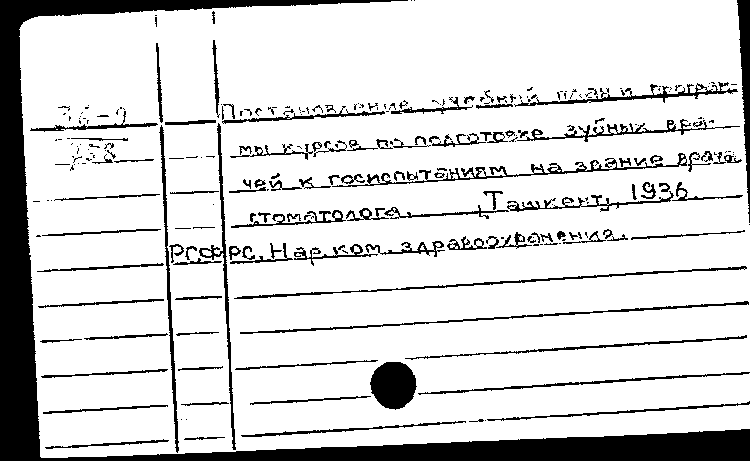 36-9
758
Постановление, учебный план и програм-
мы курсов по подготовке зубных вра-
чей к госиспытаниям на звание врача
стоматолога. [Ташкент], 1936.
РСФРС. Нар. ком. здравоохранения.